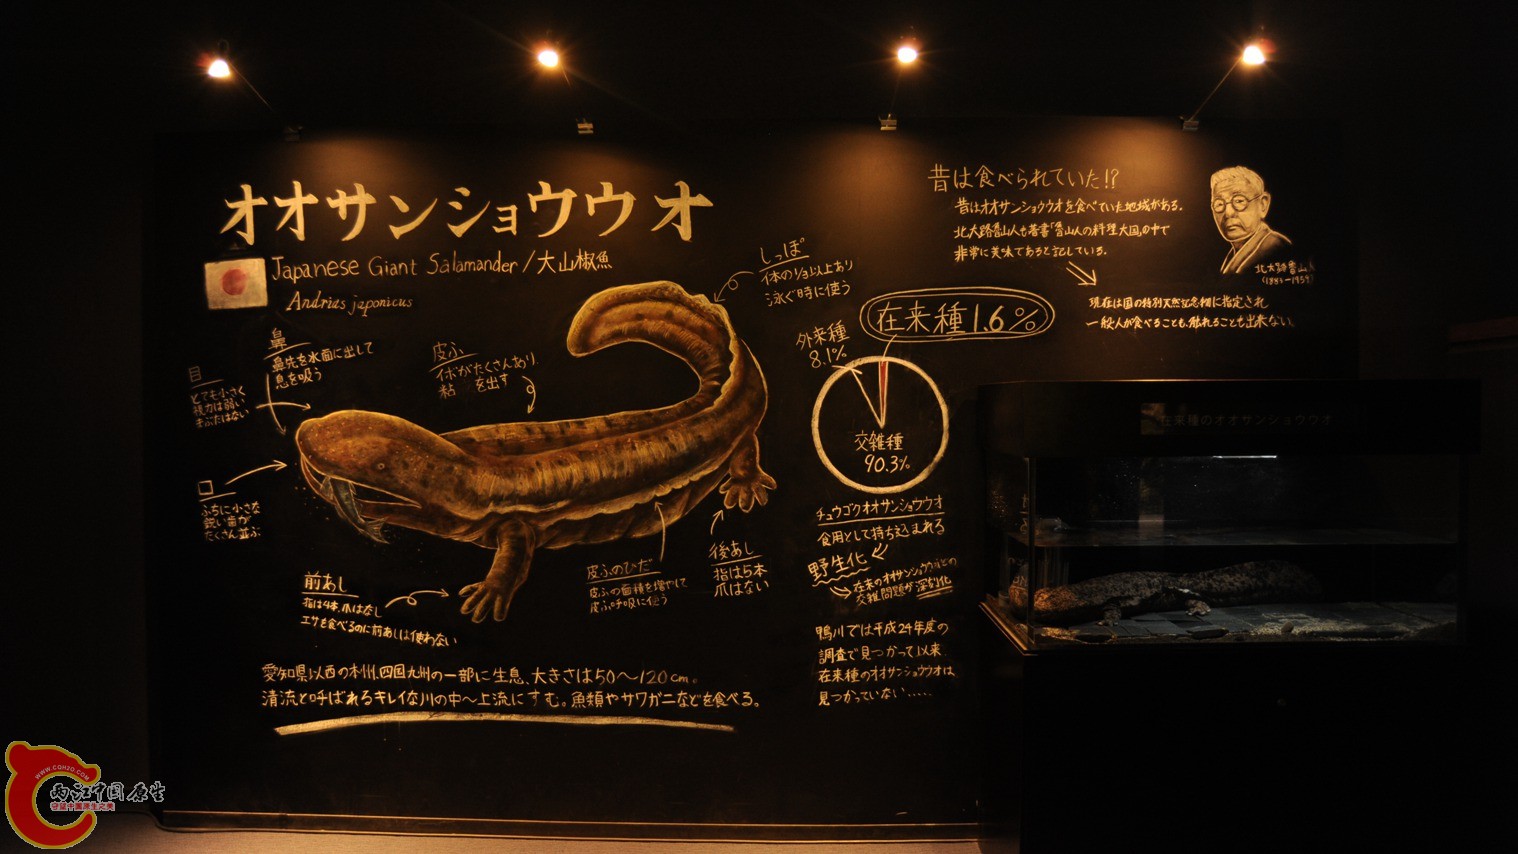 オオサンショウウオ
Japanese Giant Salamander/大山椒魚
Andrias japonicus
鼻
鼻先を水面に出して
息を吸う
目
とても小さく
視力は弱い
まぶたはない
口
ふちに小さな
鋭い歯が
たくさん並ぶ
皮ふ
イボがたくさんあり
粘 を出す
しっぽ
体の1/3以上あり
泳ぐ時に使う
前あし
指は4本、爪はなし
エサを食べるのに前あしは使わない
皮ふのひだ
皮ふの面積を増やして
皮ふ呼吸に使う
後あし
指は5本
爪はない
愛知県以西の本州、四国九州の一部に生息、大きさは50〜120cm。
清流と呼ばれるキレイな川の中〜上流にすむ。魚類やサワガニなどを食べる。
在来種1.6%
外来種
8.1%
交雑種
90.3%
チュウゴクオオサンショウウオ
食用として持ち込まれる
野生化
在来のオオサンショウウオとの
交雑問題が深刻化
鴨川では平成24年度の
調査で見つかって以来
在来種のオオサンショウウオは
見つかっていない.....
昔は食べられていた!?
昔はオオサンショウウオを食べていた地域がある。
北大路魯山人も著書「魯山人の料理大国」の中で
非常に美味であると記している。
北大路魯山人
(1883-1959)
現在は国の特別天然記念物に指定され
一般人が食べることも、触れることも出来ない。
在来種のオオサンショウウオ
WWW.CQHZO.COM
两江中国原生
守望中国原生之美